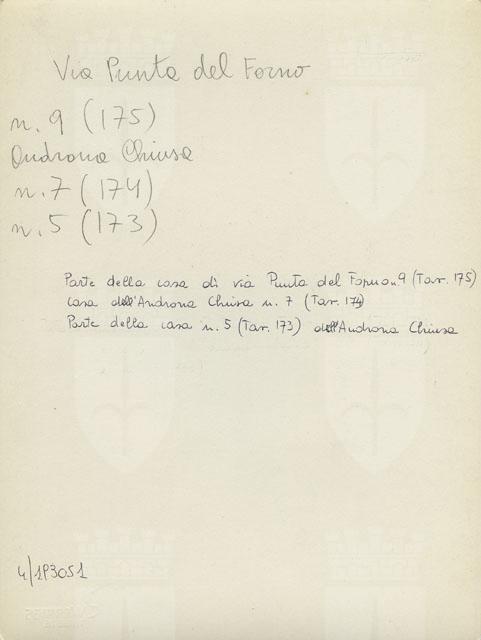 Via Punta del Forno
n. 9 (175)
Androna Chiusa
n. 7 (174)
n. 5 (173)
Parte della casa di via Punta del Forno n. 9 (Tav. 175)
casa dell'Androna Chiusa n. 7 (Tav. 174)
Parte della casa n. 5 (Tav. 173) dell'Androna Chiusa
4/193051